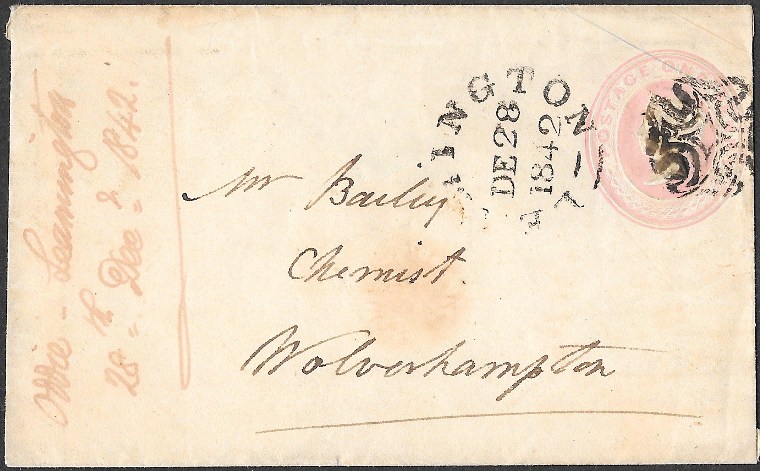 Office - Leamington
28th Dec. 1842.
INGTON
DE 28
1842
POSTAGE ON
Mr Bailey
Chemist.
Wolverhampton